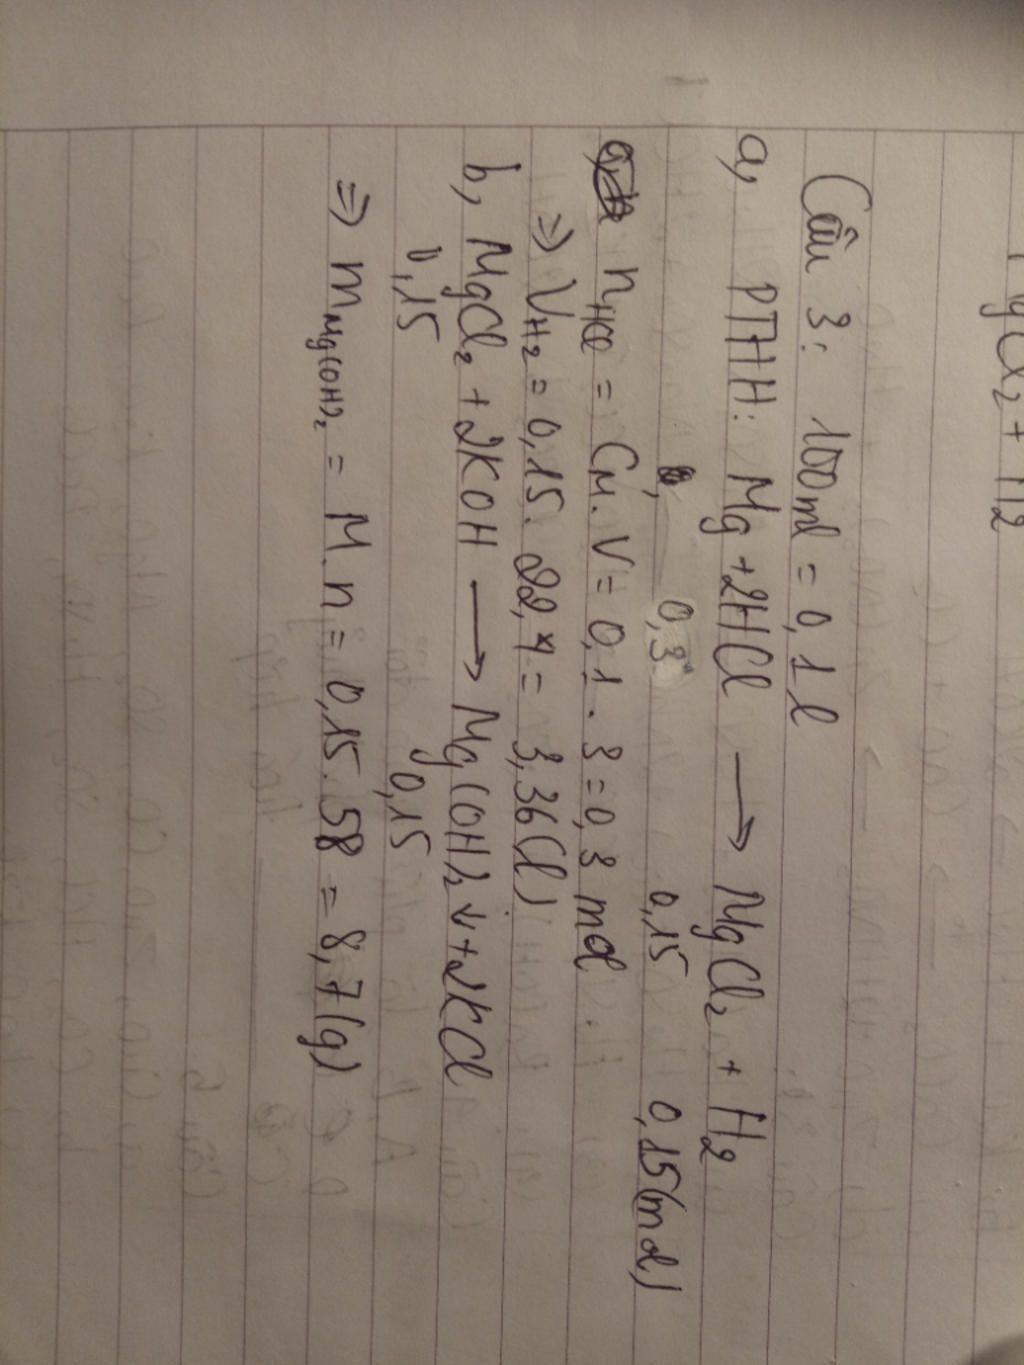 MgCl₂ + H2
Câu 3: 100ml = 0,1 l
a, PTHH: Mg + 2HCl → MgCl₂ + H₂
0,3 0,15 0,15(mol)
nHCl = CM. V = 0,1 . 3 = 0,3 mol
=> VH₂ = 0,15. 22,4 = 3,36(l)
b, MgCl₂ + 2KOH → Mg(OH)₂ ↓ + 2KCl
0,15 0,15
=> mMg(OH)₂ = M. n = 0,15. 58 = 8,7(g)